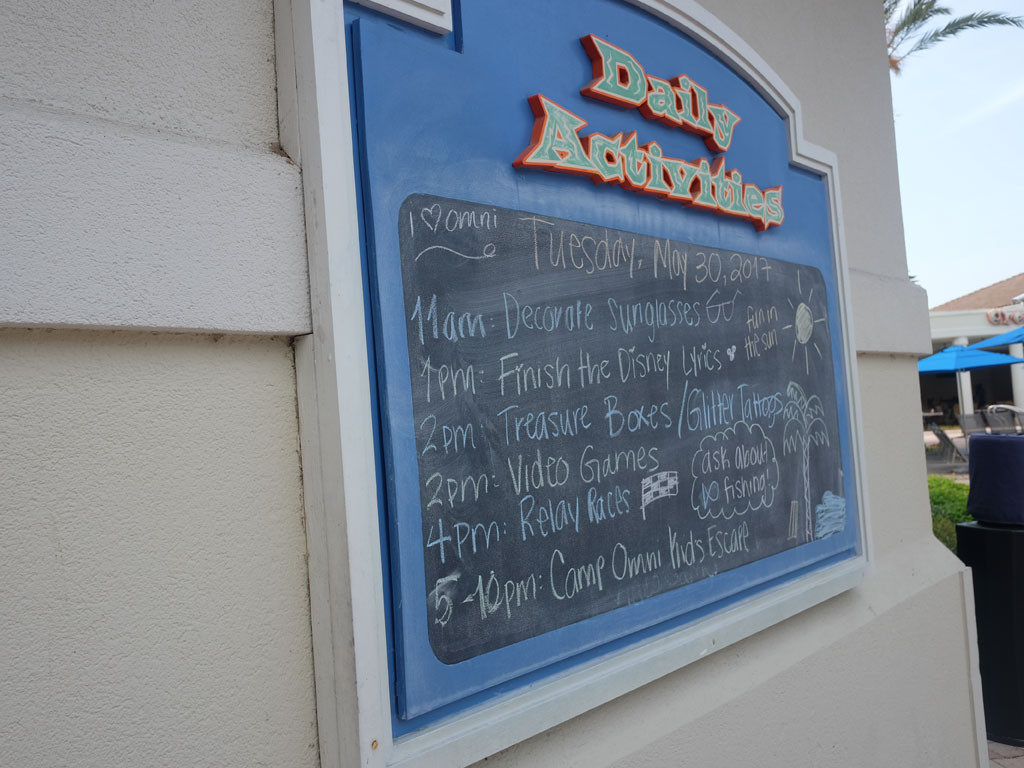 Daily
Activities
I ♡ omni
Tuesday, May 30, 2017
11am: Decorate Sunglasses
fun in
the sun
1pm: Finish the Disney Lyrics
2pm Treasure Boxes / Glitter Tattoos
2pm: Video Games
ask about
fishing!
4pm: Relay Races
5-10pm: Camp Omni Kids Escape